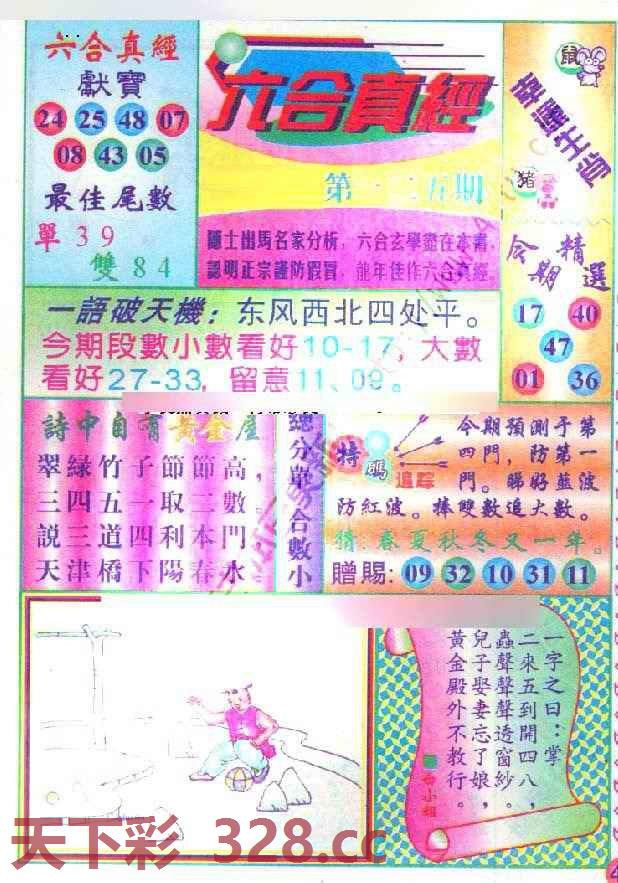 六合真經
獻寶
24 25 48 07
08 43 05
最佳尾數
單39
雙84
六合真經
第一二五期
隱士出馬名家分析，六合玄學盡在本書，
認明正宗謹防假冒，龍年佳作六合真經。
鼠
幸運生肖
豬
今期精選
17 40
47
01 36
一語破天機：东风西北四处平。
今期段數小數看好10-17，大數
看好27-33，留意11、09。
詩中自有黃金屋
翠綠竹子節節高，
三四五一取二數。
說三道四利本門
天津橋下陽春水
總分單合數小
特碼追踪
今期預測于第
四門，防第一
門。睇好藍波
防紅波。捧雙數追大數。
猜：春夏秋冬又一年。
贈賜：09 32 10 31 11
一字之曰：掌
二來五到開四八，
蟲聲聲聲透窗紗。
兒子娶妻忘了娘，
黃金殿外不教行。
天下彩 328.cc
4